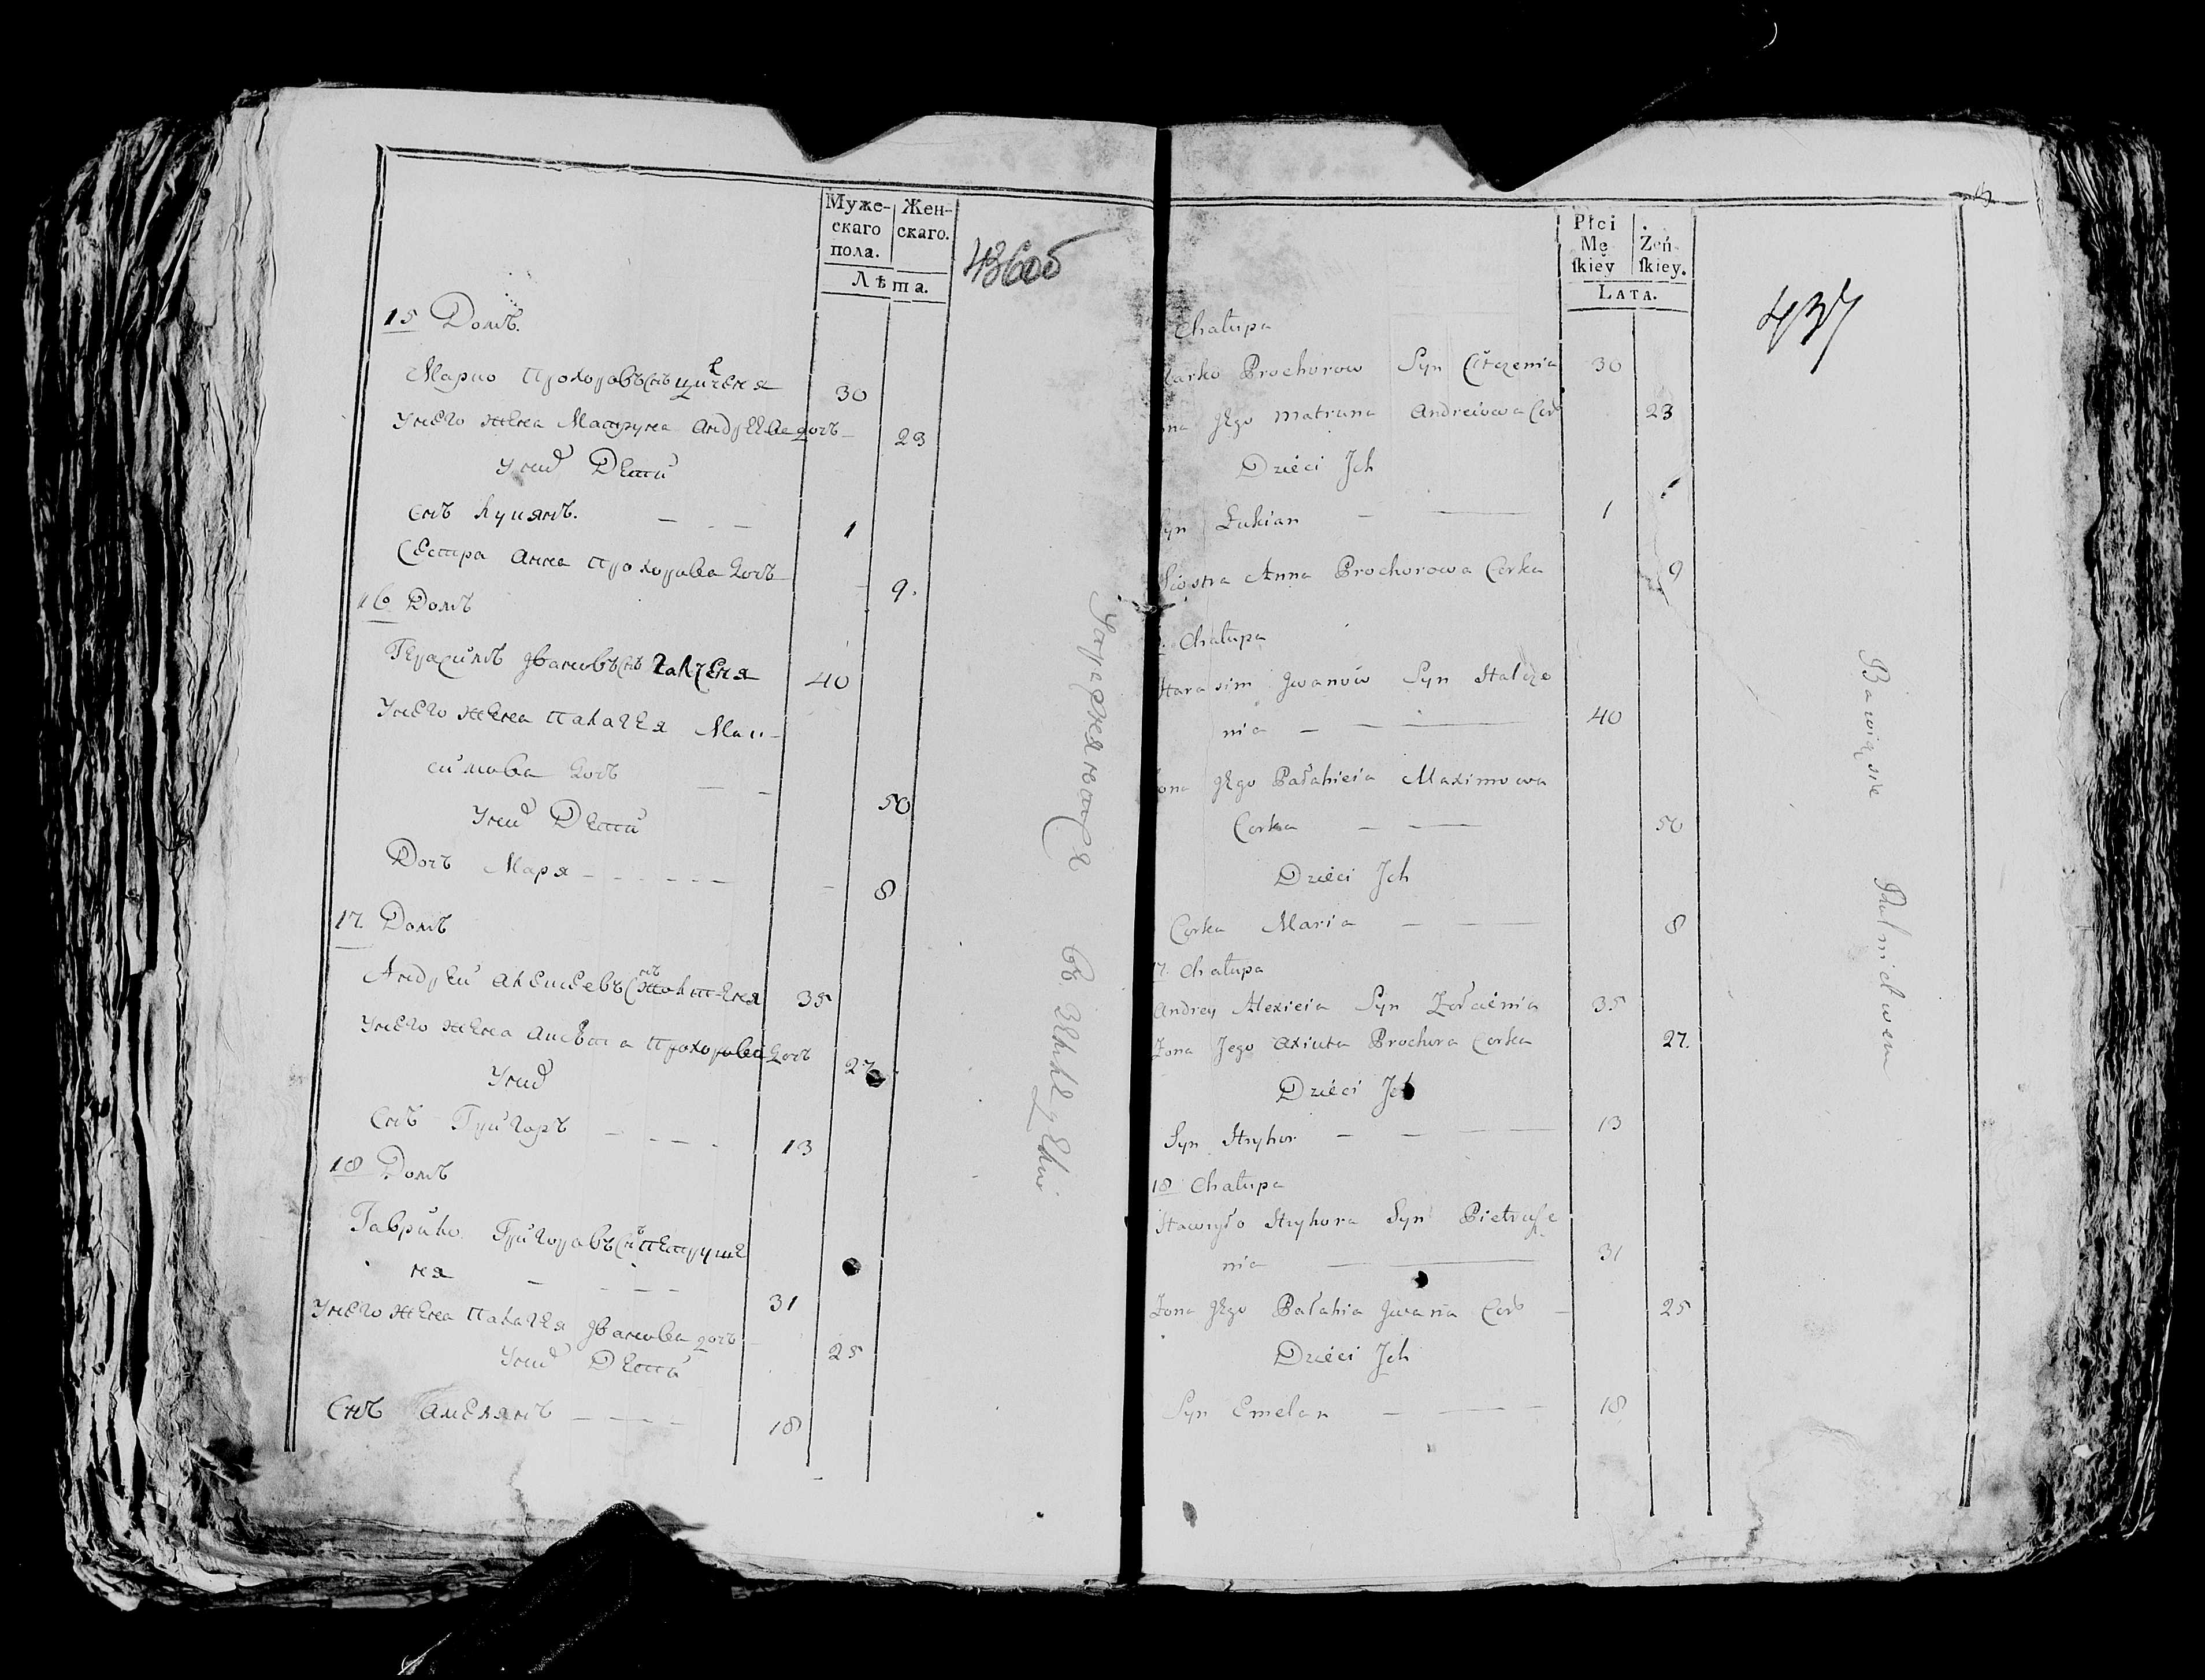 Муже-
скаго
пола.
Жен-
скаго.
Лѣта.
436об
15 Домъ.
Марко Прохоровъ снъ 30
Унего жена Матруна Андреева дочъ 23
Уних Дети
Снъ Лукянъ. 1
Сестра Анна Прохорова дочъ 9.
16 Домъ
Герасимъ Ивановъ снъ Галченя 40
Унего жена Палагея Мак-
симова дочъ 50
Уних Дети
Дочъ Маря 8
17 Домъ
Андрей Алексеевъ снъ Жолтеня 35
Унего жена Прохорова дочъ 27
Уних
Снъ Григоръ 13
18 Домъ
Гаврило Григоровъ снъ Петруше
ня 31
Унего жена Палагея Иванова дочъ 25
Уних Дети
Снъ Амелянъ 18
Упражняютца въ
Płci
Mę
skiey
Żeń-
skiey.
LATA.
437
Chałupa
Marko Prochorow Syn 30
Żona Jego Matruna Andreiowa Cor 23
Dzieci Jch
Syn Łukian 1
Siostra Anna Prochorowa Corka 9
Chałupa
Harasim Jwanow Syn Halcze
nia 40
Żona Jego Pałahieia Maximowa
Corka 50
Dzieci Jch
Corka Maria 8
17. Chałupa
Andrey Alexieia Syn Żołcienia 35
Żona Jego Axiuta Prochora Corka 27.
Dzieci Jch
Syn Hryhor 13
18 Chałupa
Hawryło Hryhora Syn Pietrusze
nia 31
Żona Jego Pałahia Jwana Cor 25
Dzieci Jch
Syn Emelan 18
Bawią sie Rulnictwem